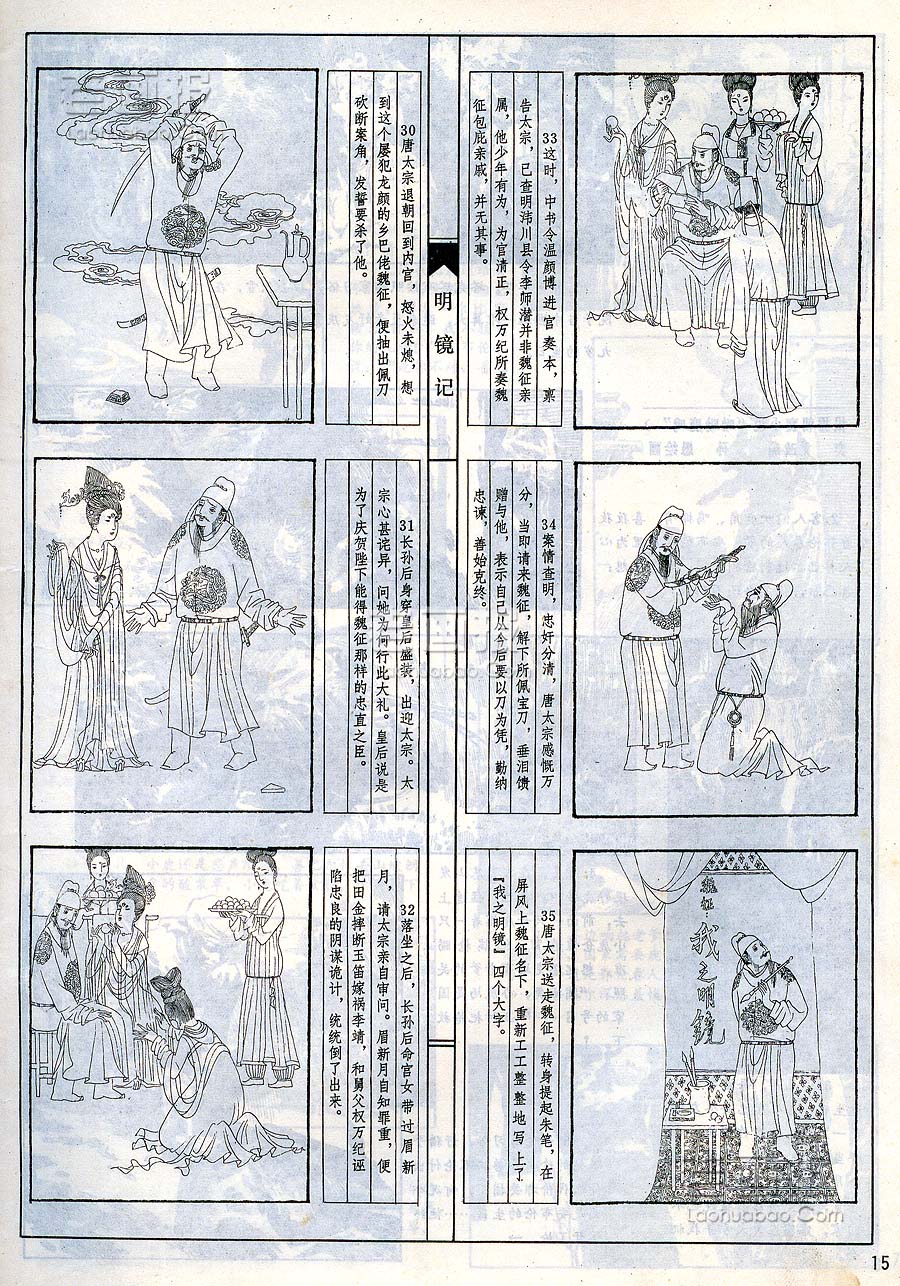 30唐太宗退朝回到内宫，怒火未熄，想
到这个屡犯龙颜的乡巴佬魏征，便抽出佩刀
砍断案角，发誓要杀了他。
31长孙后身穿皇后盛装，出迎太宗。太
宗心甚诧异，问她为何行此大礼。皇后说是
为了庆贺陛下能得魏征那样的忠直之臣。
32落坐之后，长孙后命宫女带过眉新
月，请太宗亲自审问。眉新月自知罪重，便
把田金摔断玉笛嫁祸李靖，和舅父权万纪诬
陷忠良的阴谋诡计，统统倒了出来。
明镜记
33这时，中书令温颜博进宫奏本，禀
告太宗，已查明沣川县令李师潜并非魏征亲
属，他少年有为，为官清正，权万纪所奏魏
征包庇亲戚，并无其事。
34案情查明，忠奸分清，唐太宗感慨万
分，当即请来魏征，解下所佩宝刀，垂泪馈
赠与他，表示自己从今后要以刀为凭，勤纳
忠谏，善始克终。
35唐太宗送走魏征，转身提起朱笔，在
屏风上魏征名下，重新工工整整地写上了
『我之明镜』四个大字。
魏征：
我之明镜
Laohuabao.Com
15